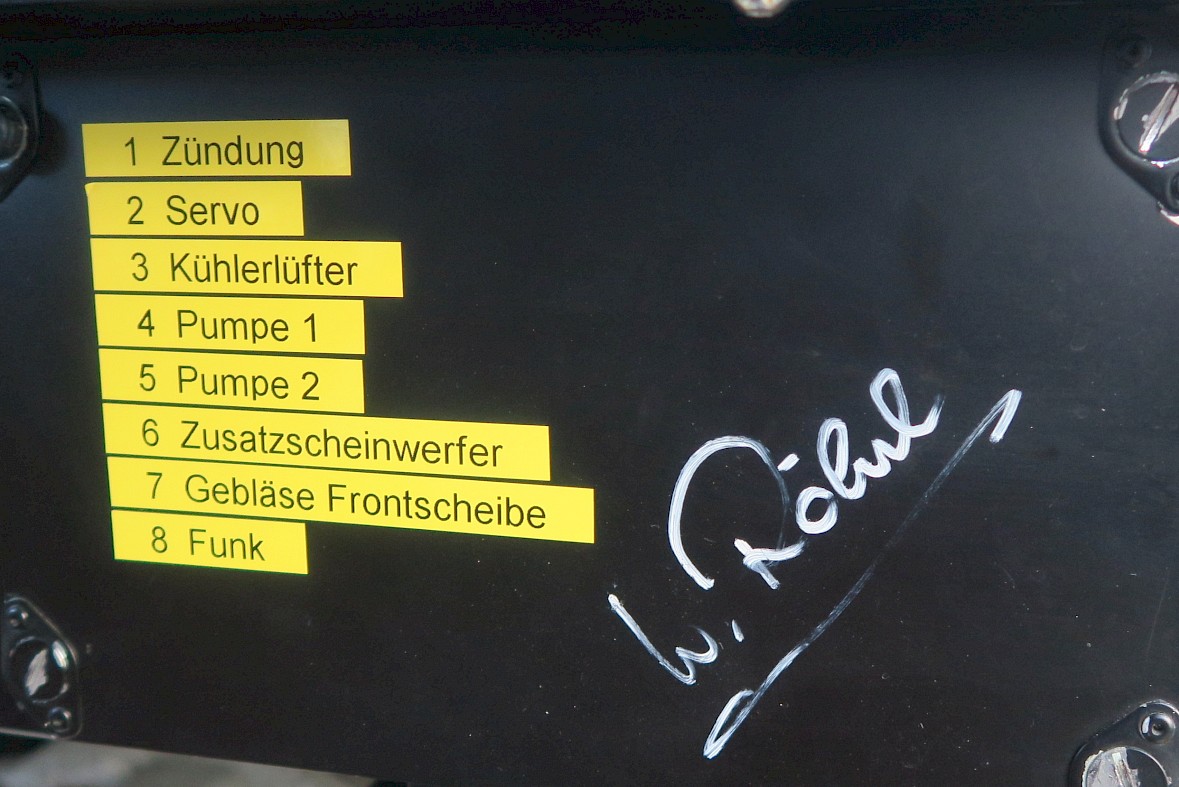 1 Zündung
2 Servo
3 Kühlerlüfter
4 Pumpe 1
5 Pumpe 2
6 Zusatzscheinwerfer
7 Gebläse Frontscheibe
8 Funk
W. Röhrl